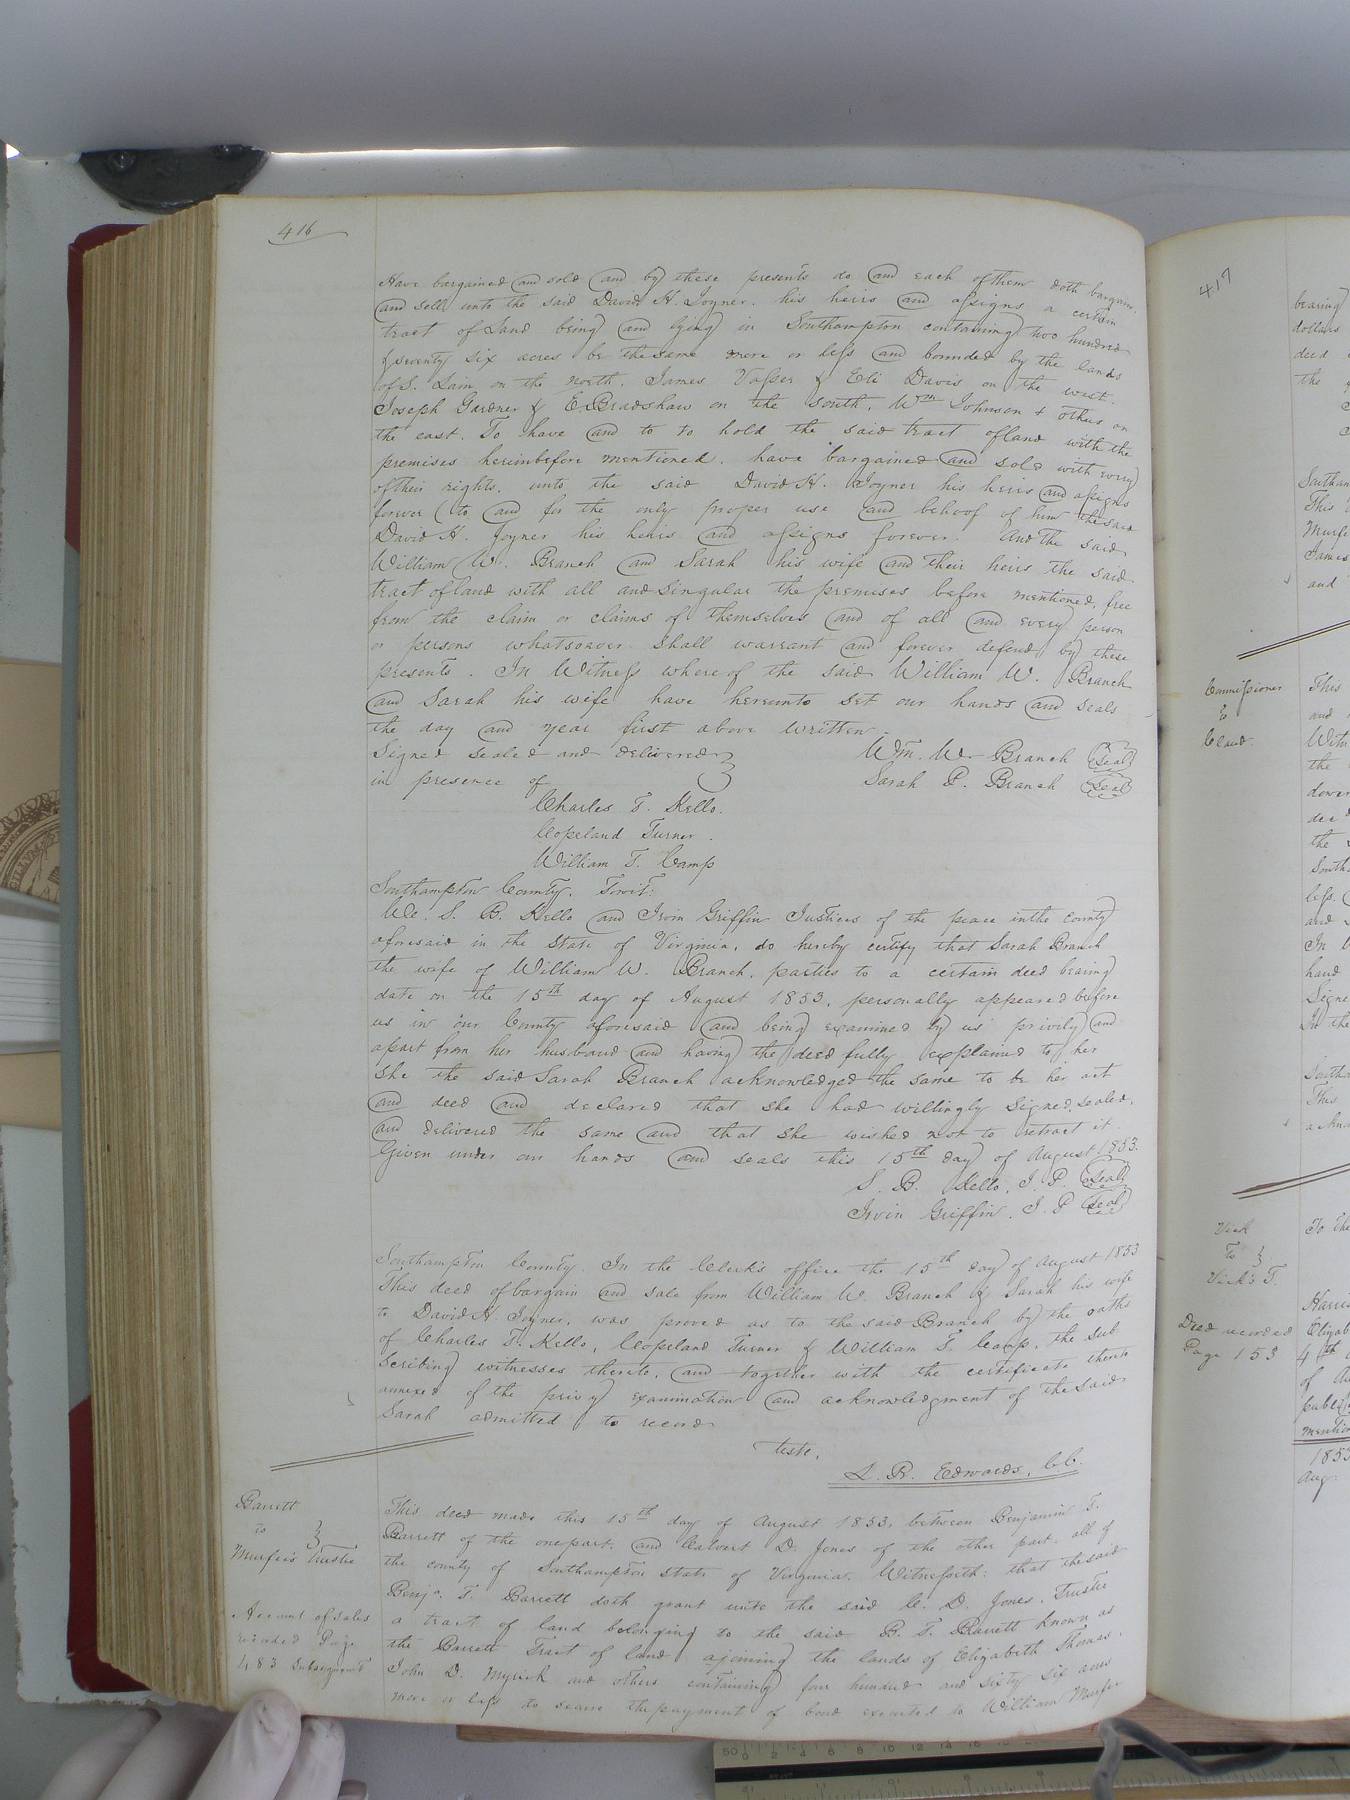 416
Have bargained and sold and by these presents do and each of them doth bargain
and sell unto the said David H. Joyner, his heirs and assigns a certain
tract of Land being and lying in Southampton containing two hundred
& seventy six acres be the same more or less and bounded by the lands
of S. Lain on the north, James Vasser & Eli Davis on the west.
Joseph Gardner & E. Bradshaw on the south, Wm Johnson & others on
the east. To have and to to hold the said tract of land with the
premises hereinbefore mentioned. have bargained and sold with every
of their rights. unto the said David H. Joyner his heirs and assigns
forever to and for the only proper use and behoof of him the said
David H. Joyner his heirs and assigns forever. And the said
William W. Branch and Sarah his wife and their heirs the said
tract of land with all and singular the premises before mentioned, free
from the claim or claims of themselves and of all and every person
or persons whatsoever shall warrant and forever defend by these
presents. In Witness whereof the said William W. Branch
and Sarah his wife have hereunto set our hands and seals
the day and year first above written.
Signed sealed and delivered Wm. W. Branch Seal
in presence of Sarah P. Branch Seal
Charles T. Kello.
Copeland Turner.
William T. Camp
Southampton County. Towit:
We. S. B. Kello and Irvin Griffin Justices of the peace in the County
aforesaid in the State of Virginia, do hereby certify that Sarah Branch
the wife of William W. Branch, parties to a certain deed bearing
date on the 15th day of August 1853, personally appeared before
us in our County aforesaid and being examined by us privily and
apart from her husband and having the deed fully explained to her
She the said Sarah Branch acknowledged the same to be her act
and deed and declared that she had willingly signed, sealed,
and delivered the same and that she wished not to retract it.
Given under our hands and seals this 15th day of August 1853.
S. B. Kello, J. P. Seal
Irvin Griffin. J. P Seal
Southampton County. In the Clerk's office the 15th day of August 1853
This deed of bargain and sale from William W. Branch & Sarah his wife
to David H. Joyner, was proved as to the said Branch by the oaths
of Charles T. Kello, Copeland Turner & William T. Camp, the sub
scribing witnesses thereto, and together with the certificate thereto
annexed of the privy examination and acknowledgment of the said
Sarah admitted to record
Teste,
L. R. Edwards, CC.
Barrett
to
Murfee's Trustee
Account of sales
recorded Page
483 Subsequent
This deed made this 15th day of August 1853, between Benjamin T.
Barrett of the one part, and Calvert D. Jones of the other part, all of
the county of Southampton State of Virginia. Witnesseth: that the said
Benja. T. Barrett doth grant unto the said C. D. Jones, Trustee
a tract of land belonging to the said B. T. Barrett known as
the Barrett Tract of land ajoining the lands of Elizabeth Thomas.
John D. Myrick and others containing four hundred and sixty six acres
more or less to secure the payment of bond executed to William Murfee
417
bearing
dollars
deed
the
Southam
This
Murfe
James
and
Commissioner
&
Claud.
This
and
Witn
the
dower
dee
the
South
less.
and
In
hand
Signe
In the
Southa
This
Vick
To
Vick's T.
Deed recorded
Page 153
To the
Harri
Elizab
4th
of
public
mention
1853
Aug.